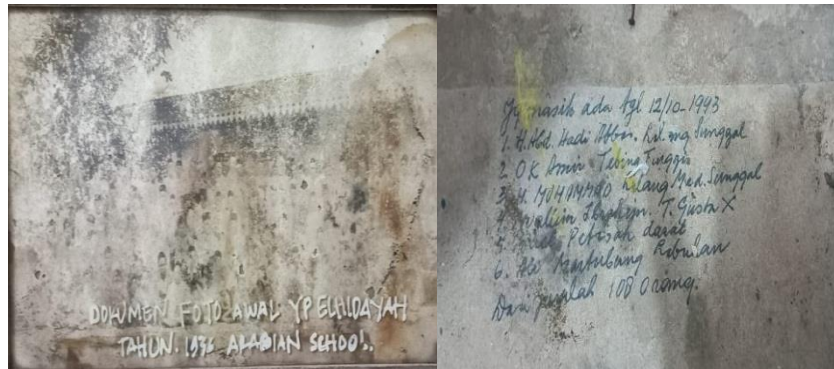 DOKUMEN FOTO AWAL YP ELHIDAYAH
TAHUN. 1936 ARABIAN SCHOOL.
Yg masih ada tgl 12/10-1993
1. H. Abd. Hadi Abbas. Kel. mg Sunggal
2. OK Amir Tebing Tinggi
3. H. MOHAMMAD Lalang Med. Sunggal
Ibrahim. T. Gusta X
5. Petisah darat
6. Martubung
Dan jumlah 108 Orang.